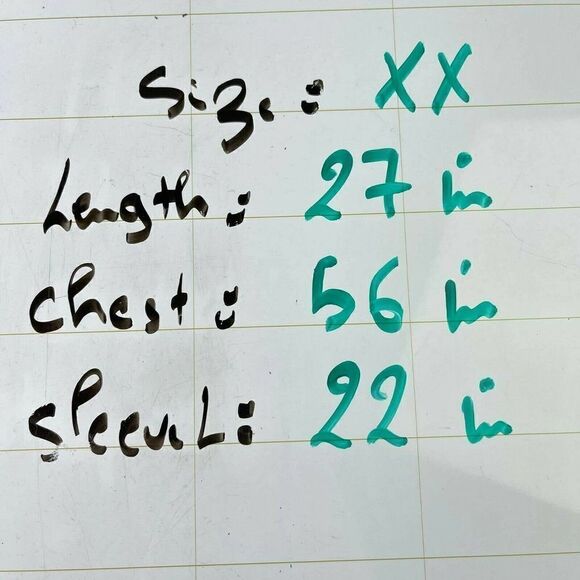 Size: XX
Length: 27 in
Chest: 56 in
Sleeve: 22 in